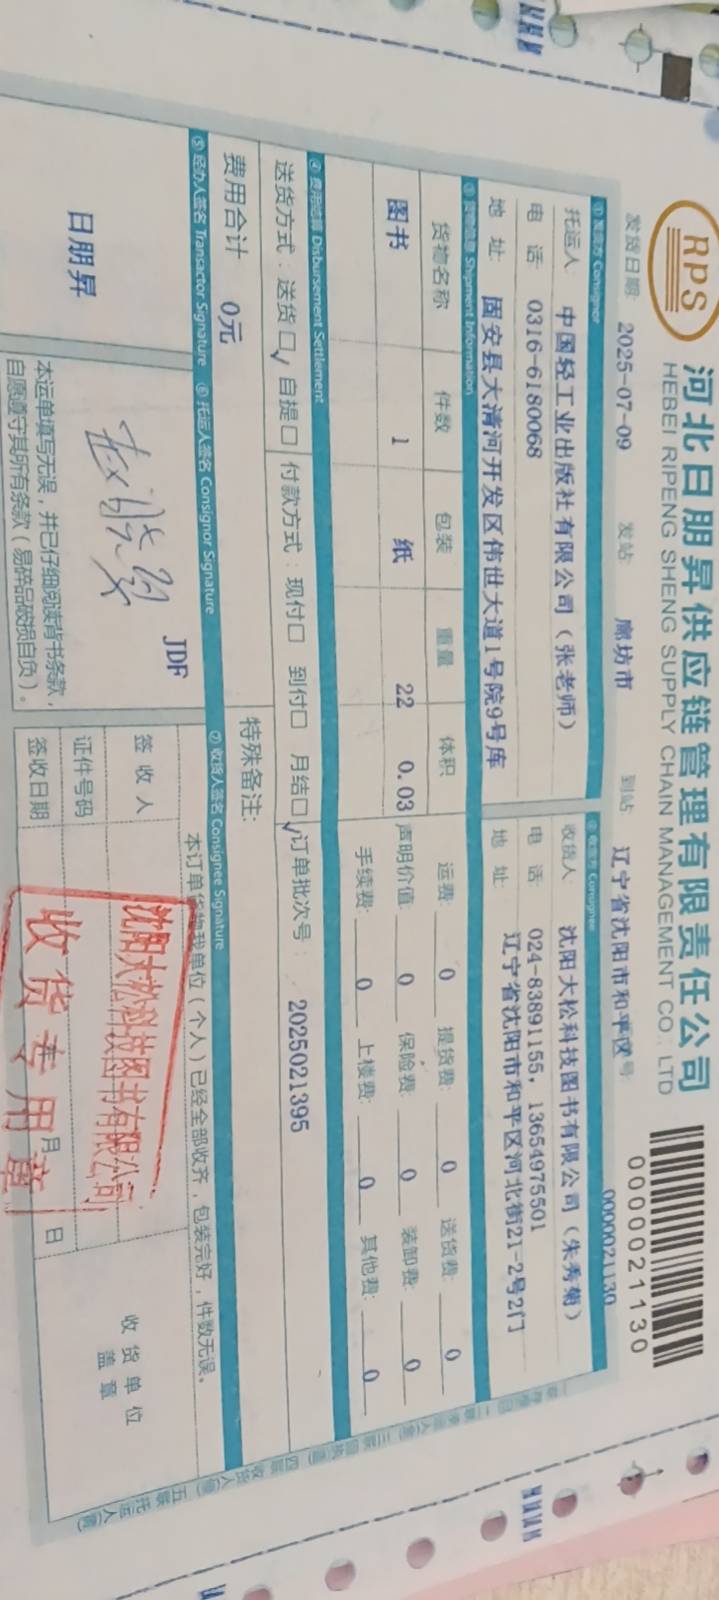 RPS
河北日朋昇供应链管理有限责任公司
HEBEI RIPENG SHENG SUPPLY CHAIN MANAGEMENT CO., LTD
0000021130
发货日期: 2025-07-09 发站 廊坊市 到站 辽宁省沈阳市和平区 号: 0000021130
① 发货方 Consignor ② 收货方 Consignee
托运人: 中国轻工业出版社有限公司(张老师) 收货人: 沈阳大松科技图书有限公司(朱秀菊)
电 话: 0316-6180068 电 话: 024-83891155, 13654975501
地 址: 固安县大清河开发区伟世大道1号院9号库 地 址: 辽宁省沈阳市和平区河北街21-2号2门
③ 货物信息 Shipment Information
货物名称 件数 包装 重量 体积 运费: 0 提货费: 0 送货费: 0
图书 1 纸 22 0.03 声明价值: 0 保险费: 0 装卸费: 0
手续费: 0 上楼费: 0 其他费: 0
④ 费用结算 Disbursement Settlement
送货方式: 送货☐√ 自提☐ 付款方式: 现付☐ 到付☐ 月结☐√ 订单批次号: 2025021395
费用合计 0元 特殊备注:
⑤ 经办人签名 Transactor Signature ⑥ 托运人签名 Consignor Signature ⑦ 收货人签名 Consignee Signature
日朋昇
JDF
本订单货物我单位(个人)已经全部收齐,包装完好,件数无误。
签收人
证件号码
签收日期 月 日
收货单位
盖章
沈阳大松科技图书有限公司
收货专用章
本运单填写无误,并已仔细阅读背书条款,
自愿遵守其所有条款(易碎品破损自负)。